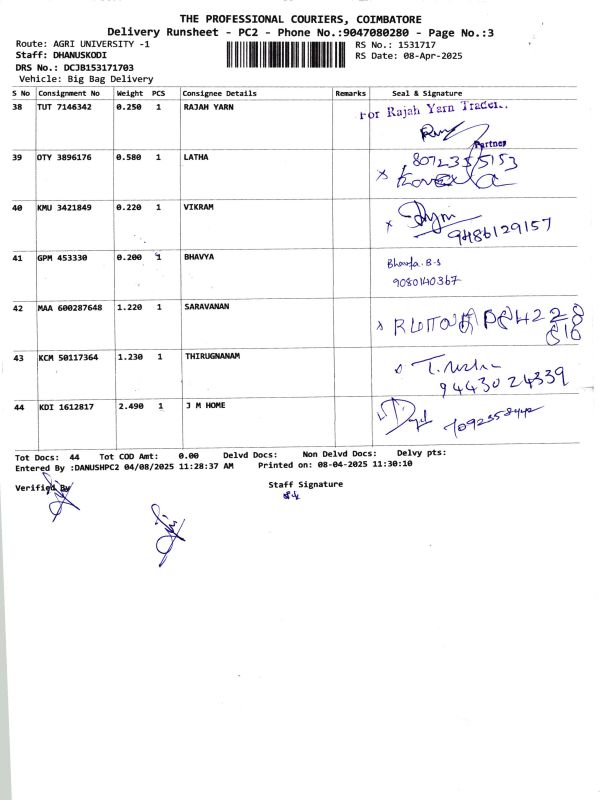 THE PROFESSIONAL COURIERS, COIMBATORE
Delivery Runsheet - PC2 - Phone No.:9047080280 - Page No.:3
Route: AGRI UNIVERSITY -1 RS No.: 1531717
Staff: DHANUSKODI RS Date: 08-Apr-2025
DRS No.: DCJB153171703
Vehicle: Big Bag Delivery
S No Consignment No Weight PCS Consignee Details Remarks Seal & Signature
38 TUT 7146342 0.250 1 RAJAH YARN For Rajah Yarn Traders.
Partner
39 OTY 3896176 0.580 1 LATHA
40 KMU 3421849 0.220 1 VIKRAM
9486129157
41 GPM 453330 0.200 1 BHAVYA Bhavya. B.S
9080140367
42 MAA 600287648 1.220 1 SARAVANAN
43 KCM 50117364 1.230 1 THIRUGNANAM
9443024339
44 KDI 1612817 2.490 1 J M HOME
Tot Docs: 44 Tot COD Amt: 0.00 Delvd Docs: Non Delvd Docs: Delvy pts:
Entered By :DANUSHPC2 04/08/2025 11:28:37 AM Printed on: 08-04-2025 11:30:10
Verified By Staff Signature